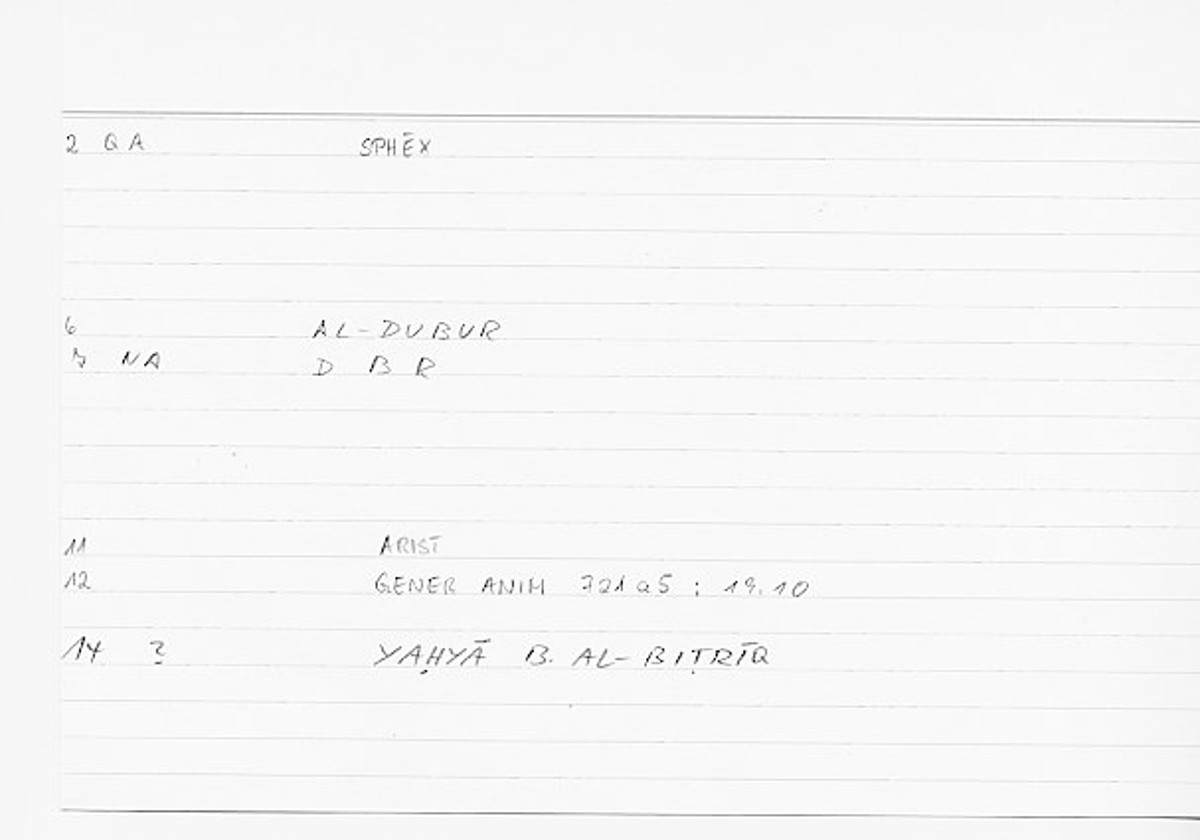 2 QA SPHĒX
6 AL-DUBUR
7 NA D B R
11 ARIST
12 GENER ANIM 721a5 : 19.10
14 ? YAḤYĀ B. AL-BIṬRĪQ